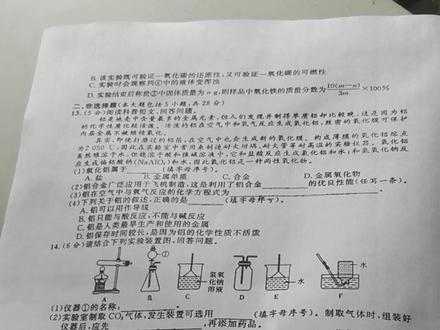 B. 该实验既可验证一氧化碳的还原性，又可验证一氧化碳的可燃性
C. 实验时会观察到④中的液体变浑浊
D. 实验结束后称得③中固体质量为 n g，则样品中氧化铁的质量分数为10(m－n)/3m×100%
二、非选择题(本大题包括5小题，共28分)
13.(5分)阅读科普短文，回答问题。
铝是地壳中含量最多的金属元素，但人们发现并制得单质铝却比较晚，这是因为铝
的化学性质比较活泼。洁净的铝在空气中和氧气反应生成氧化铝，致密的氧化膜可保护
内层金属不被继续氧化。
其实，即使打磨过的铝箔，在空气中也会生成新的氧化膜。构成薄膜的氧化铝熔点
为2 050 ℃，因此在实验室中常用来制造耐火坩埚、耐火管等耐高温的实验仪器。氧化铝
虽然难溶于水，但能溶于酸和强碱溶液中，它和盐酸反应生成氯化铝和水，和氢氧化钠反
应生成偏铝酸钠(NaAlO₂)和水，因此氧化铝是一种两性氧化物。
(1)氧化铝属于　　　(填字母序号)。
A. 盐　B. 金属单质　C. 化合物　D. 金属氧化物
(2)铝合金广泛应用于飞机制造，这是利用了铝合金　　　的优良性能(任写一条)。
(3)铝在空气中与氧气反应的化学方程式为　　　。
(4)下列关于铝的叙述，正确的是　　　(填字母序号)。
A. 铝可以用作导线
B. 铝只能与酸反应，不能与碱反应
C. 铝是人类最早生产和使用的金属
D. 铝保存时间较长，是因为铝的化学性质不活泼
14.(6分)请结合下列实验装置图，回答问题。
①
氢氧
化钠
溶液
水
水
A　B　C　D　E　F
(1)仪器①的名称：　　　。
(2)实验室制取CO₂气体，发生装置可选用　　　(填字母序号)。制取气体时，组装好
仪器后，应先　　　，再添加药品。